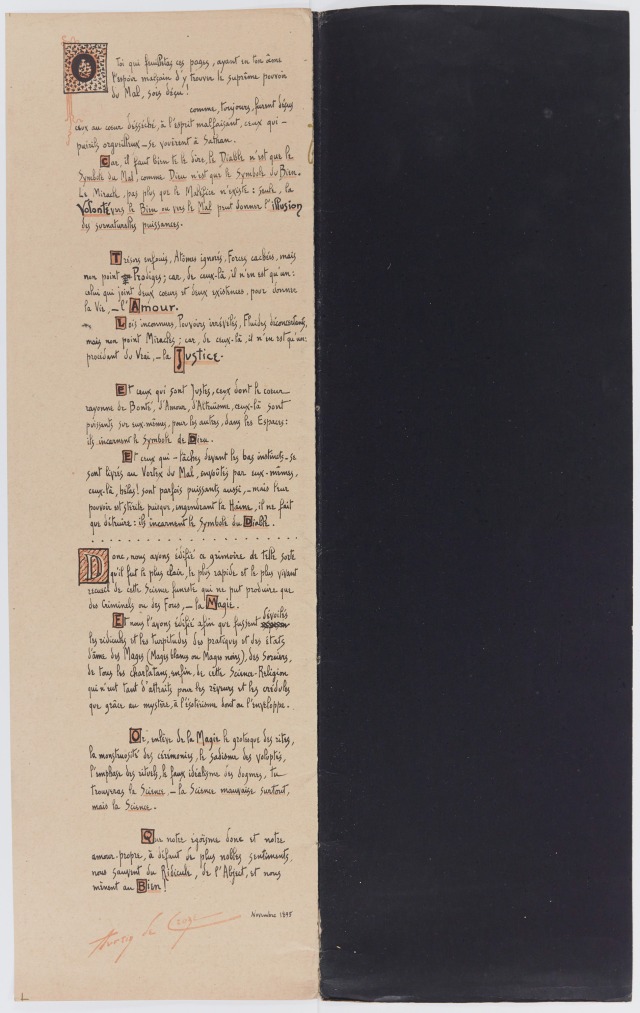 O toi qui feuilletas ces pages, ayant en ton âme
l'espoir malsain d'y trouver le suprême pouvoir
du Mal, sois déçu!
comme, toujours, furent déçus
ceux au cœur desséché, à l'esprit malfaisant, ceux qui -
puérils orgueilleux - se vouèrent à Sathan.
Car, il faut bien te le dire, le Diable n'est que le
Symbole du Mal, comme Dieu n'est que le Symbole du Bien.
Le Miracle, pas plus que le Maléfice n'existe: seule, la
Volonté vers le Bien ou vers le Mal peut donner l'illusion
des surnaturelles puissances.
Trésors enfouis, Atômes ignorés, Forces cachées, mais
non point Prodiges; car, de ceux-là, il n'en est qu'un:
celui qui joint deux cœurs et deux existences, pour donner
la Vie, - l'Amour.
Lois inconnues, Pouvoirs irrévélés, Fluides déconcertants,
mais non point Miracles; car, de ceux-là, il n'en est qu'un:
procédant du Vrai, - la Justice.
Et ceux qui sont Justes, ceux dont le cœur
rayonne de Bonté, d'Amour, d'Altruisme, ceux-là sont
puissants sur eux-mêmes, pour les autres, dans les Espaces:
ils incarnent le Symbole de Dieu.
Et ceux qui - lâches devant les bas instincts - se
sont livrés au Vortex du Mal, envoûtés par eux-mêmes,
ceux-là, hélas! sont parfois puissants aussi, - mais leur
pouvoir est stérile puisque, engendrant la Haine, il ne fait
que détruire: ils incarnent le Symbole du Diable.
Donc, nous avons édifié ce grimoire de telle sorte
qu'il fut le plus clair, le plus rapide et le plus vivant
recueil de cette Science funeste qui ne put produire que
des Criminels ou des Fous, - la Magie.
Et nous l'avons édifié afin que fussent dévoilés
les ridicules et les turpitudes des pratiques et des états
d'âme des Mages (Mages blancs ou Mages noirs), des Sorciers,
de tous les charlatans, enfin, de cette Science-Religion
qui n'eut tant d'attraits pour les rêveurs et les crédules
que grâce au mystère, à l'ésotérisme dont on l'enveloppe.
Or, enlève de la Magie le grotesque des rites,
la monstruosité des cérémonies, le sadisme des voluptés,
l'emphase des rituels, le faux idéalisme des dogmes, tu
trouveras la Science, - la Science mauvaise surtout,
mais la Science.
Que notre égoïsme donc et notre
amour-propre, à défaut de plus nobles sentiments,
nous sauvent du Ridicule, de l'Abject, et nous
mènent au Bien!
Novembre 1895